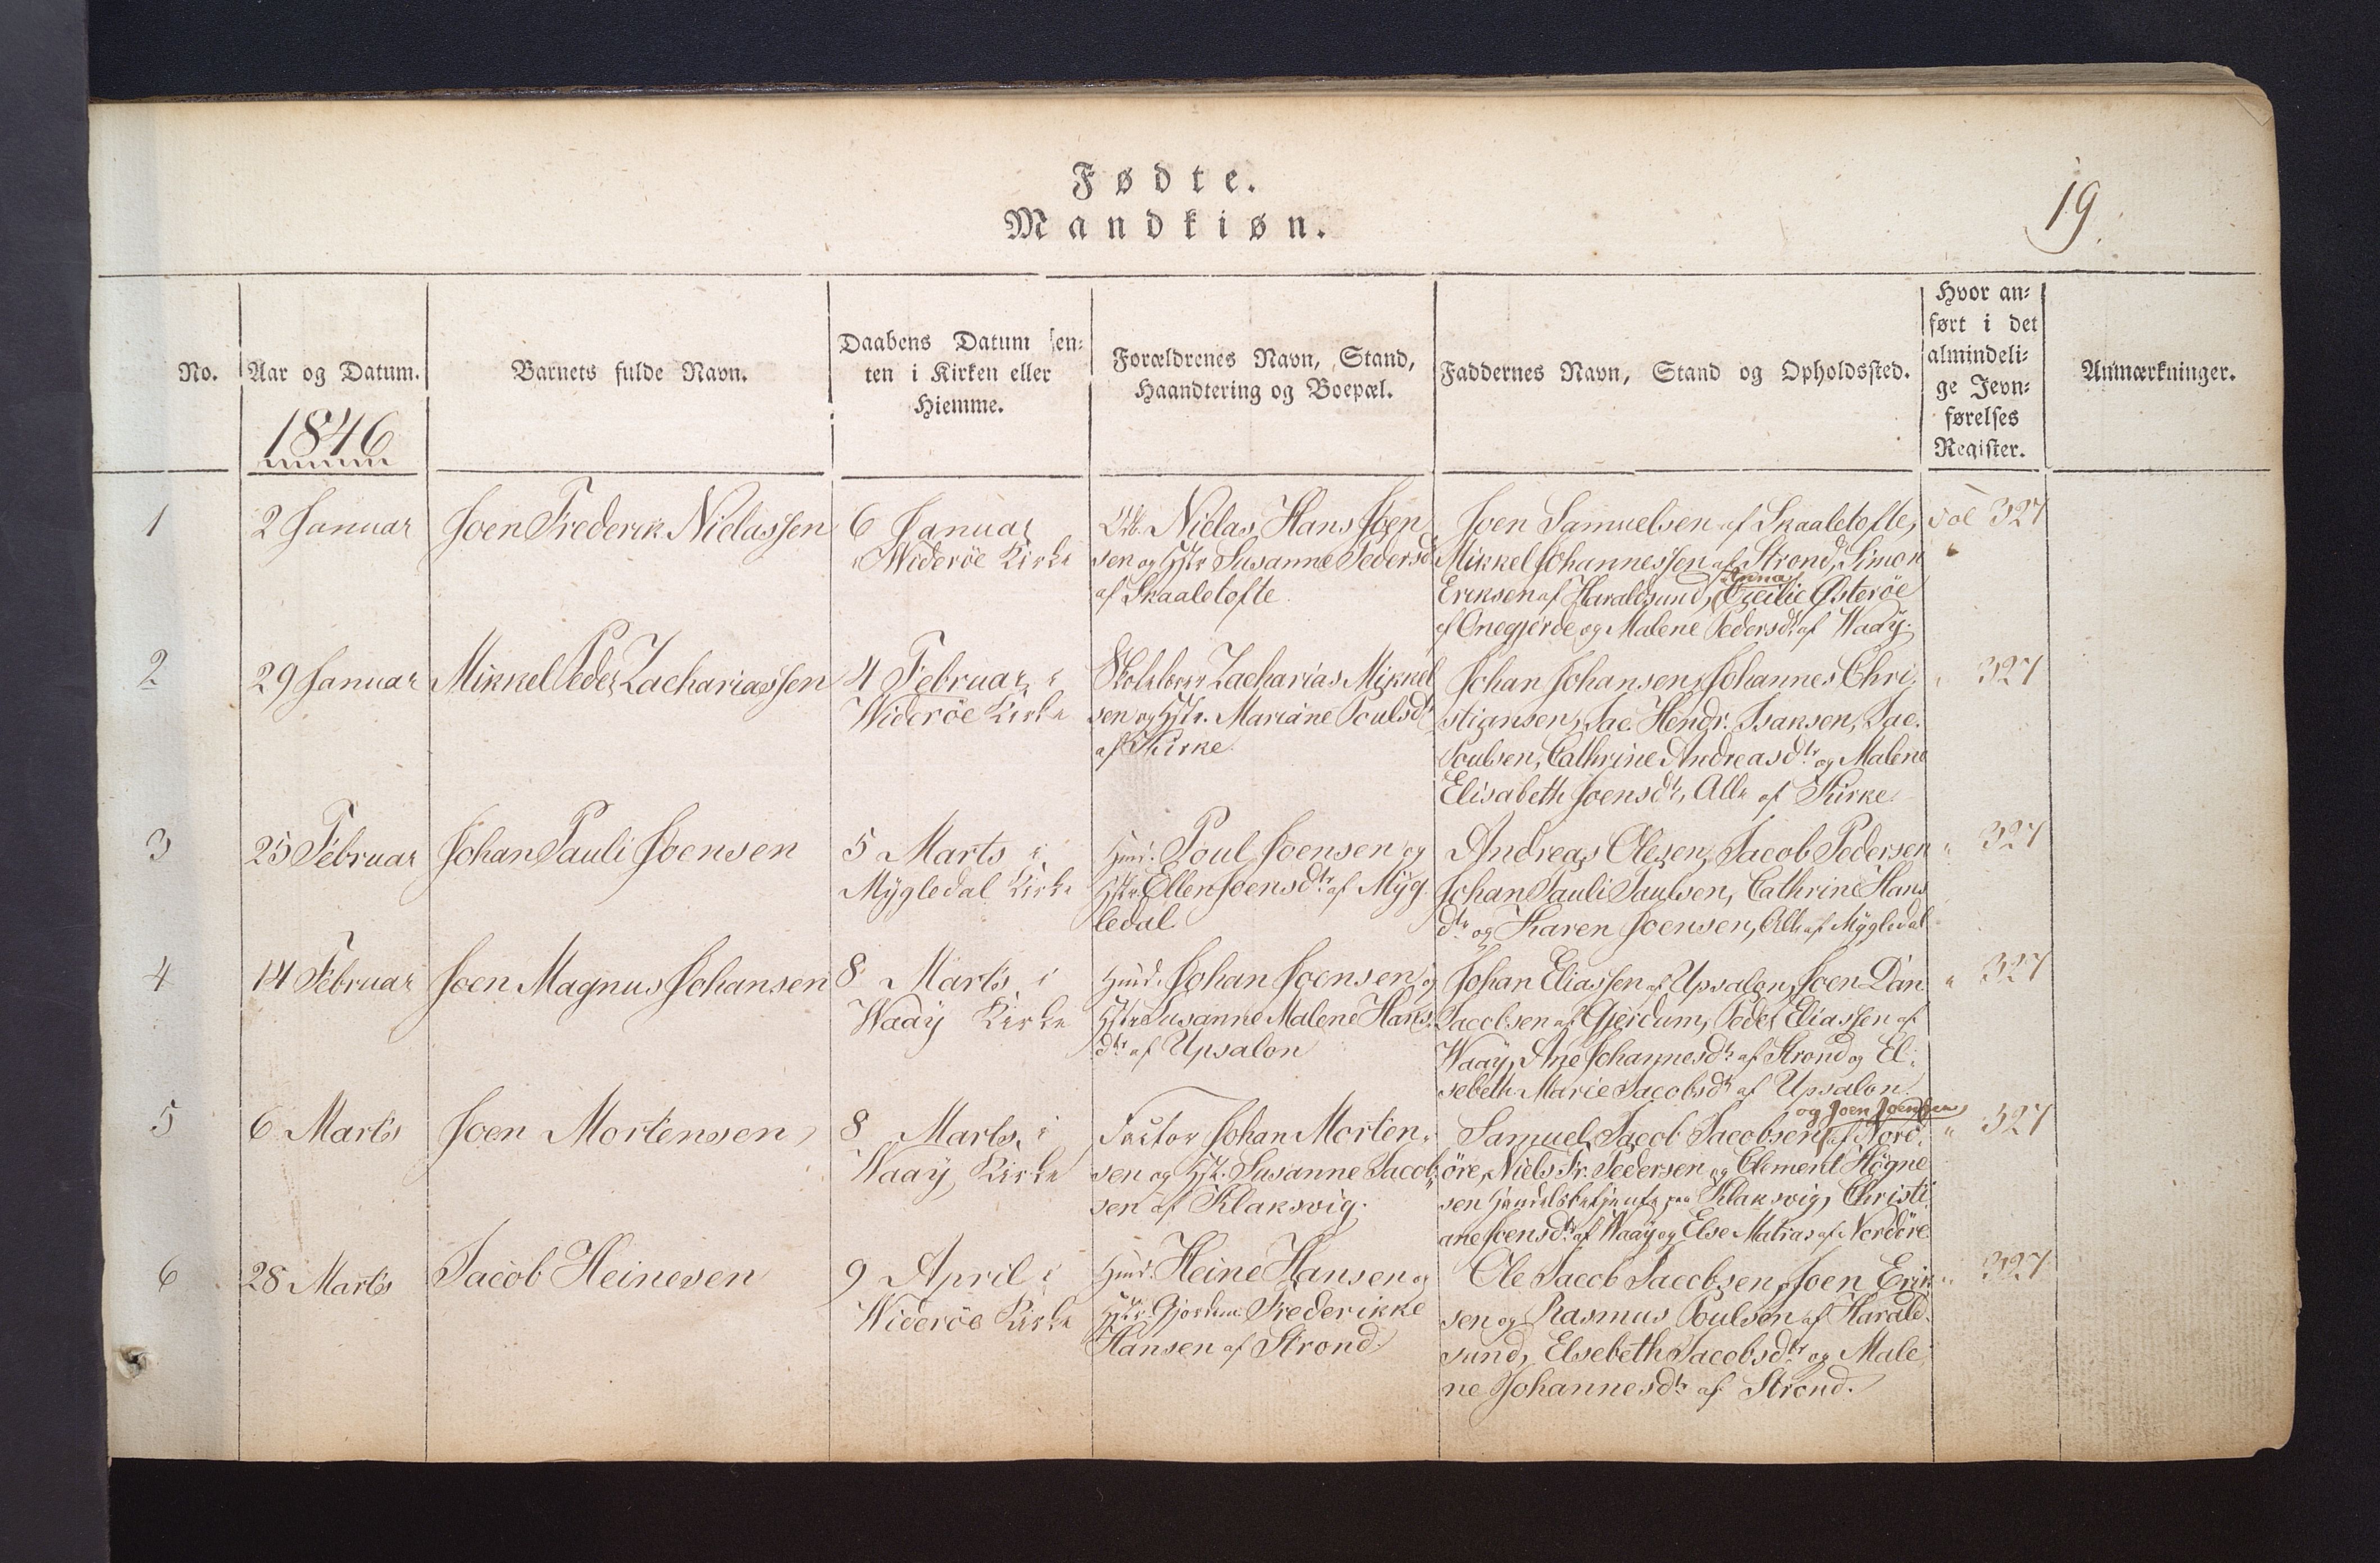 Fødte.
Mandkiøn.
19.
No.
Aar og Datum.
Barnets fulde Navn.
Daabens Datum sen-
ten i Kirken eller
Hiemme.
Forældrenes Navn, Stand,
Haandtering og Boepæl.
Faddernes Navn, Stand og Opholdssted.
Hvor an-
ført i det
almindeli-
ge Jevn-
førelses
Register.
Anmærkninger.
1846
1
2 Januar
Joen Frederik Nielassen
6 Januar
Widerøe Kirke
Nielas Hans Joen
sen og Hstr Susanne Pedersdtr
af Skaaletofte
Joen Samuelsen af Skaaletofte,
Mikkel Johannessen af Strond, Simon
Eriksen af Haraldsund, Anna Cecilie Østerøe
af Onegjerde og Malene Pedersdtr af Waaÿ.
327
2
29 Januar
Mikkel Peder Zachariassen
4 Februar i
Widerøe Kirke
Zacharias Mikkel
sen og Hstr. Mariane Poulsdtr
af Kirke
Johan Johansen, Johannes Chri-
stiansen, Jac. Hendr. Isaksen, Jac.
Poulsen, Cathrine Andreasdtr og Malene
Elisabeth Joensdtr, Alle af Kirke
" 327
3
25 Februar
Johan Pauli Joensen
5 Marts i
Mÿgledal Kirke
Hmd. Poul Joensen og
Hstr Ellen Joensdtr af Mÿg-
ledal
Andreas Olesen, Jacob Pedersen
Johan Pauli Paulsen, Cathrine Hans
dtr og Karen Joensen, Alle af Mÿgledal
" 327
4
14 Februar
Joen Magnus Johansen
8 Marts i
Waaÿ Kirke
Hmd. Johan Joensen og
Hstr Susanne Malene Hans-
dtr af Upsalon
Johan Eliassen af Upsalon, Joen Dan.
Jacobsen af Gjerdum, Peder Eliassen af
Waaÿ, Ane Johannesdtr af Strond og El-
sebeth Marie Jacobsdtr af Upsalon
" 327
5
6 Marts
Joen Mortensen
8 Marts i
Waaÿ Kirke
Factor Johan Morten-
sen og Hstr. Susanne Jacob-
sen af Klaksvig.
og Joen Joensen
Samuel Jacob Jacobsen af Nord-
øre, Niels Fr. Pedersen og Clement Høgne
sen Handelsbetjente paa Klaksvig, Christi-
ane Joensdtr af Waaÿ og Else Matras af Nordøre
" 327
6
28 Marts
Jacob Heinesen
9 April i
Widerøe Kirke
Hmd. Heine Hansen og
Hstr. Gjordem. Frederikke
Hansen af Strond.
Ole Jacob Jacobsen, Joen Erik-
sen og Rasmus Poulsen af Harald-
sund, Elsebeth Jacobsdtr og Male-
ne Johannesdtr af Strond.
" 327